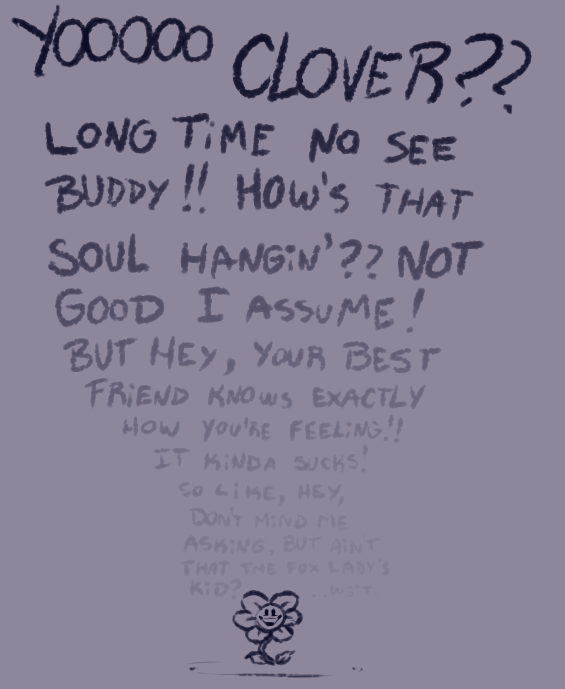 YOOOOO CLOVER??
LONG TiME NO SEE
BUDDY!! HOW'S THAT
SOUL HANGiN'?? NOT
GOOD I ASSUME!
BUT HEY, YOUR BEST
FRiEND KNOWS EXACTLY
HOW YOU'RE FEELiNG!!
IT KiNDA SUCKS!
SO LiKE, HEY,
DON'T MiND ME
ASKiNG, BUT AiNT
THAT THE FOX LADY'S
KiD? ...WAiT